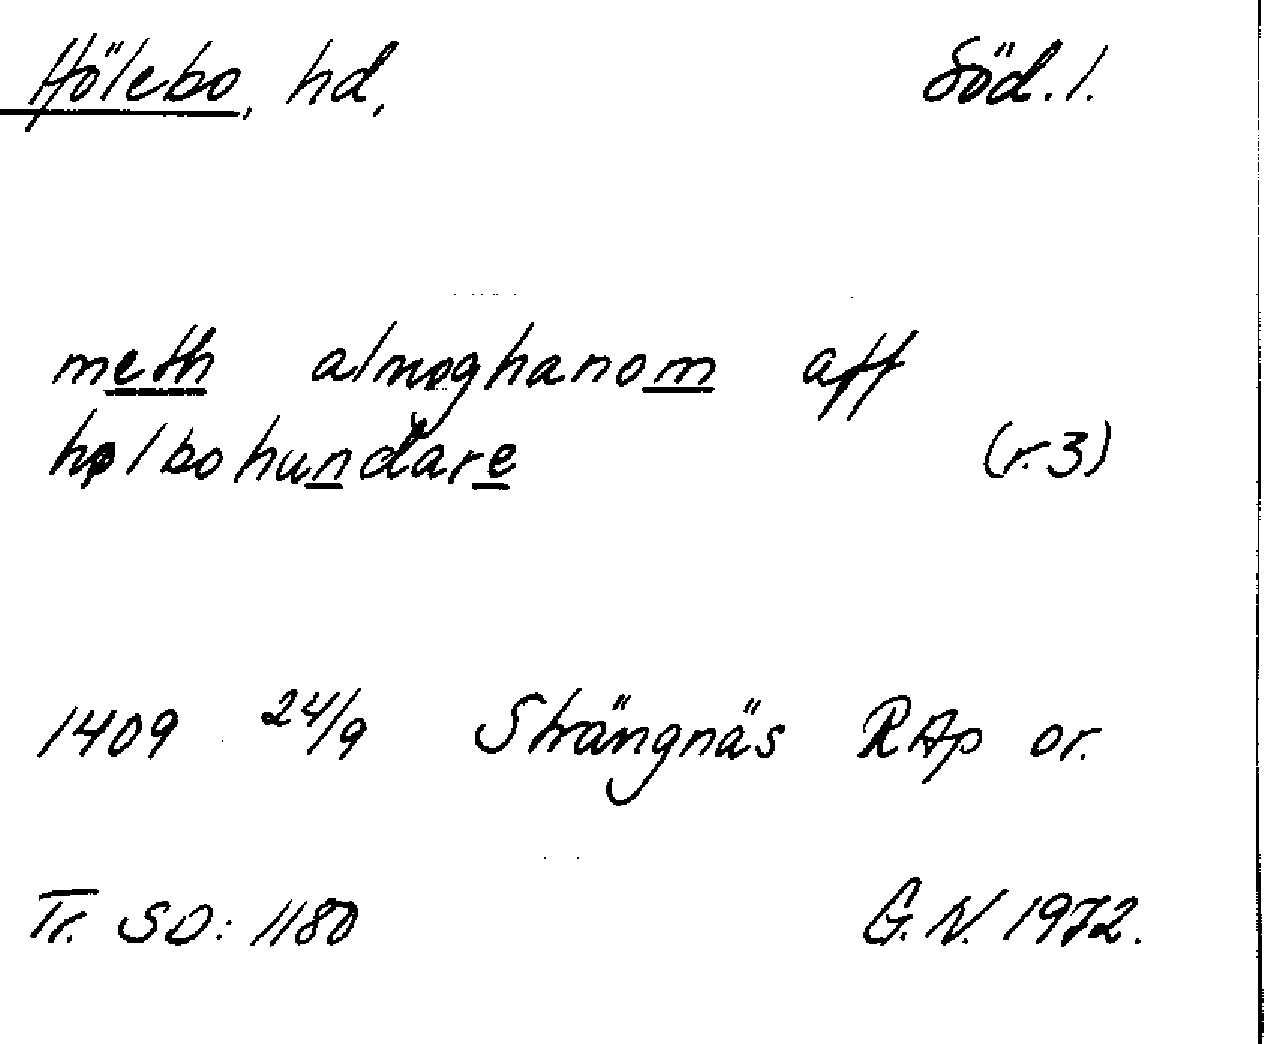 Hölebo, hd, Söd. l.
meth almoghanom aff
hølbohundare (r. 3)
1409 24/9 Strängnäs RAp or.
Tr. SD: 1180 G. N. 1972.